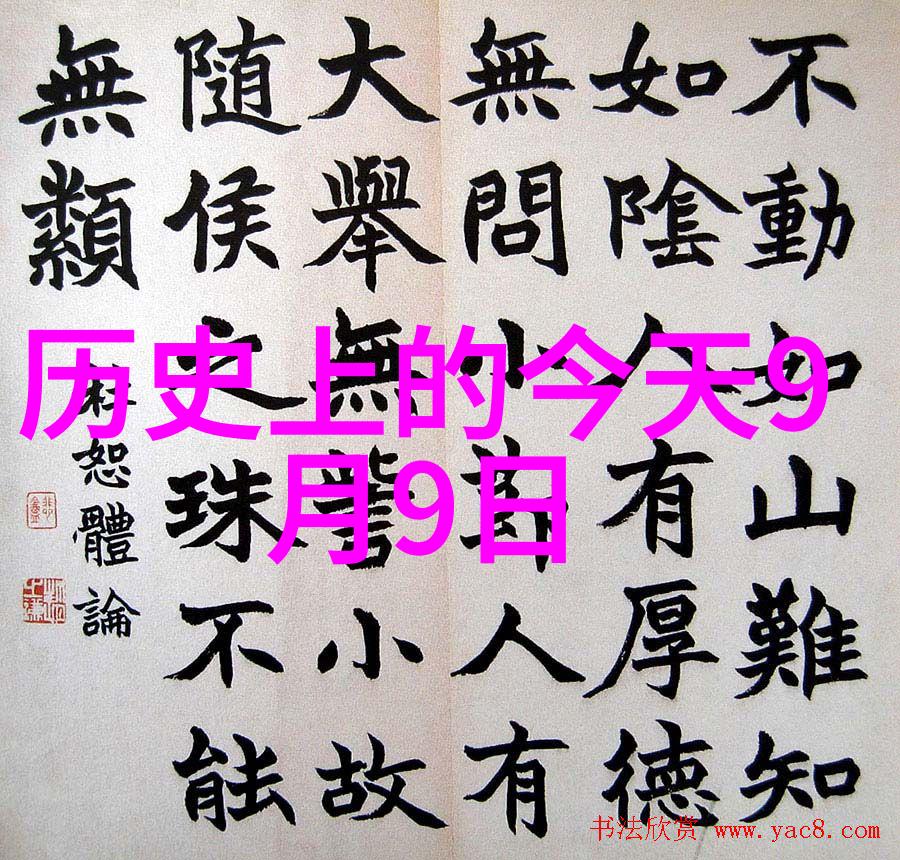 历史上的今天9
月9日
不動如山難知
如陰人有厚德
無問小節人有
大舉無訾小故
隨侯之珠不能
無纇
杜恕體論
书法欣赏 www.yac8.com